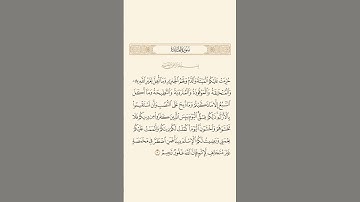 سُورَةُ المَائِدَةِ
حُرِّمَتْ عَلَيْكُمُ ٱلْمَيْتَةُ وَٱلدَّمُ وَلَحْمُ ٱلْخِنزِيرِ وَمَآ أُهِلَّ لِغَيْرِ ٱللَّهِ بِهِۦ
وَٱلْمُنْخَنِقَةُ وَٱلْمَوْقُوذَةُ وَٱلْمُتَرَدِّيَةُ وَٱلنَّطِيحَةُ وَمَآ أَكَلَ
ٱلسَّبُعُ إِلَّا مَا ذَكَّيْتُمْ وَمَا ذُبِحَ عَلَى ٱلنُّصُبِ وَأَن تَسْتَقْسِمُوا۟
بِٱلْأَزْلَٰمِ ذَٰلِكُمْ فِسْقٌ ٱلْيَوْمَ يَئِسَ ٱلَّذِينَ كَفَرُوا۟ مِن دِينِكُمْ فَلَا
تَخْشَوْهُمْ وَٱخْشَوْنِ ٱلْيَوْمَ أَكْمَلْتُ لَكُمْ دِينَكُمْ وَأَتْمَمْتُ عَلَيْكُمْ
نِعْمَتِى وَرَضِيتُ لَكُمُ ٱلْإِسْلَٰمَ دِينًا فَمَنِ ٱضْطُرَّ فِى مَخْمَصَةٍ
غَيْرَ مُتَجَانِفٍ لِّإِثْمٍ فَإِنَّ ٱللَّهَ غَفُورٌ رَّحِيمٌ ٣